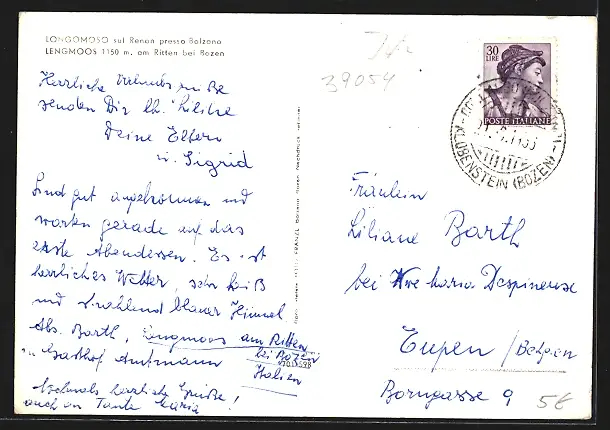 LONGOMOSO sul Renon presso Bolzano
LENGMOOS 1150 m. am Ritten bei Bozen
39054
30
LIRE
POSTE ITALIANE
KLOBENSTEIN (BOZEN)
Herzliche Urlaubsgrüße
senden Dir lb. Liliane
Deine Eltern
u. Sigrid
Sind gut angekommen und
warten gerade auf das
erste Abendessen. Es ist
herrliches Wetter, sehr heiß
und strahlend blauer Himmel
Abs. Barth, Lengmoos am Ritten
bei Bozen
Gasthof Amtmann
Italien
Nochmals herzliche Grüße!
auch an Tante Maria
Fräulein
Liliane Barth
bei Wwe Maria Despineuse
Eupen / Belgien
Borngasse 9
5€